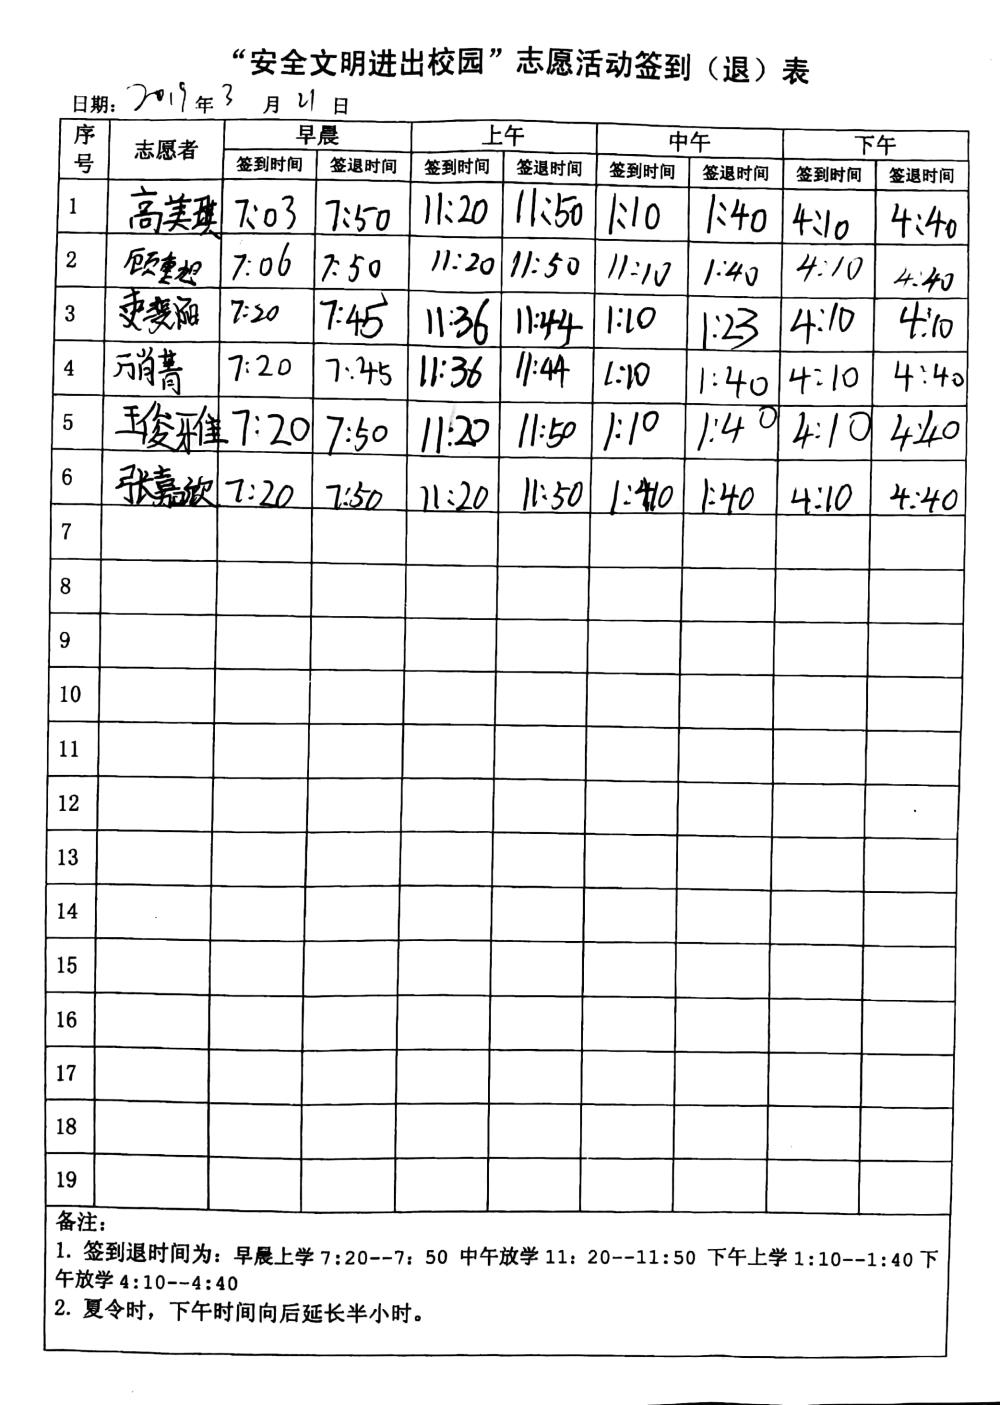 “安全文明进出校园”志愿活动签到（退）表
日期：2019年3月21日
序号 志愿者 早晨 上午 中午 下午
签到时间 签退时间 签到时间 签退时间 签到时间 签退时间 签到时间 签退时间
1 高美琪 7:03 7:50 11:20 11:50 1:10 1:40 4:10 4:40
2 顾 7:06 7:50 11:20 11:50 11:10 1:40 4:10 4:40
3 7:20 7:45 11:36 11:44 1:10 1:23 4:10 4:10
4 7:20 7:45 11:36 11:44 1:10 1:40 4:10 4:40
5 王俊雅 7:20 7:50 11:20 11:50 1:10 1:40 4:10 4:40
6 张嘉欣 7:20 7:50 11:20 11:50 1:10 1:40 4:10 4:40
7
8
9
10
11
12
13
14
15
16
17
18
19
备注：
1. 签到退时间为：早晨上学7:20--7：50 中午放学11：20--11:50 下午上学1:10--1:40下
午放学4:10--4:40
2. 夏令时，下午时间向后延长半小时。